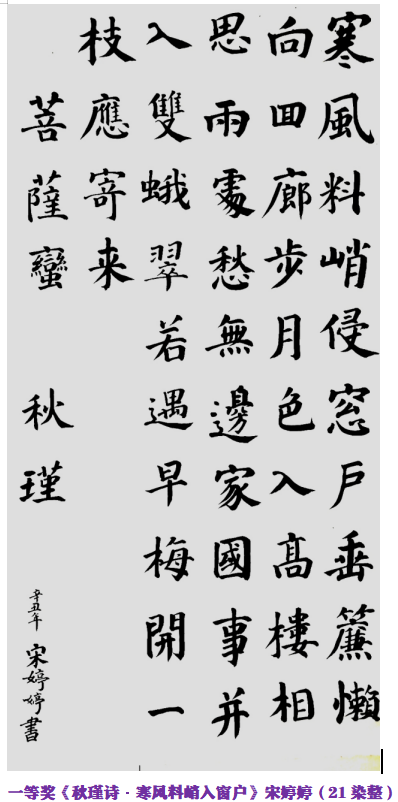 寒風料峭侵窓戶垂簾懶
向回廊步月色入髙樓相
思兩處愁無邊家國事并
入雙蛾翠若遇早梅開一
枝應寄来
菩薩蠻 秋瑾
辛丑年 宋婷婷書
一等奖《秋瑾诗·寒风料峭入窗户》宋婷婷（21染整）